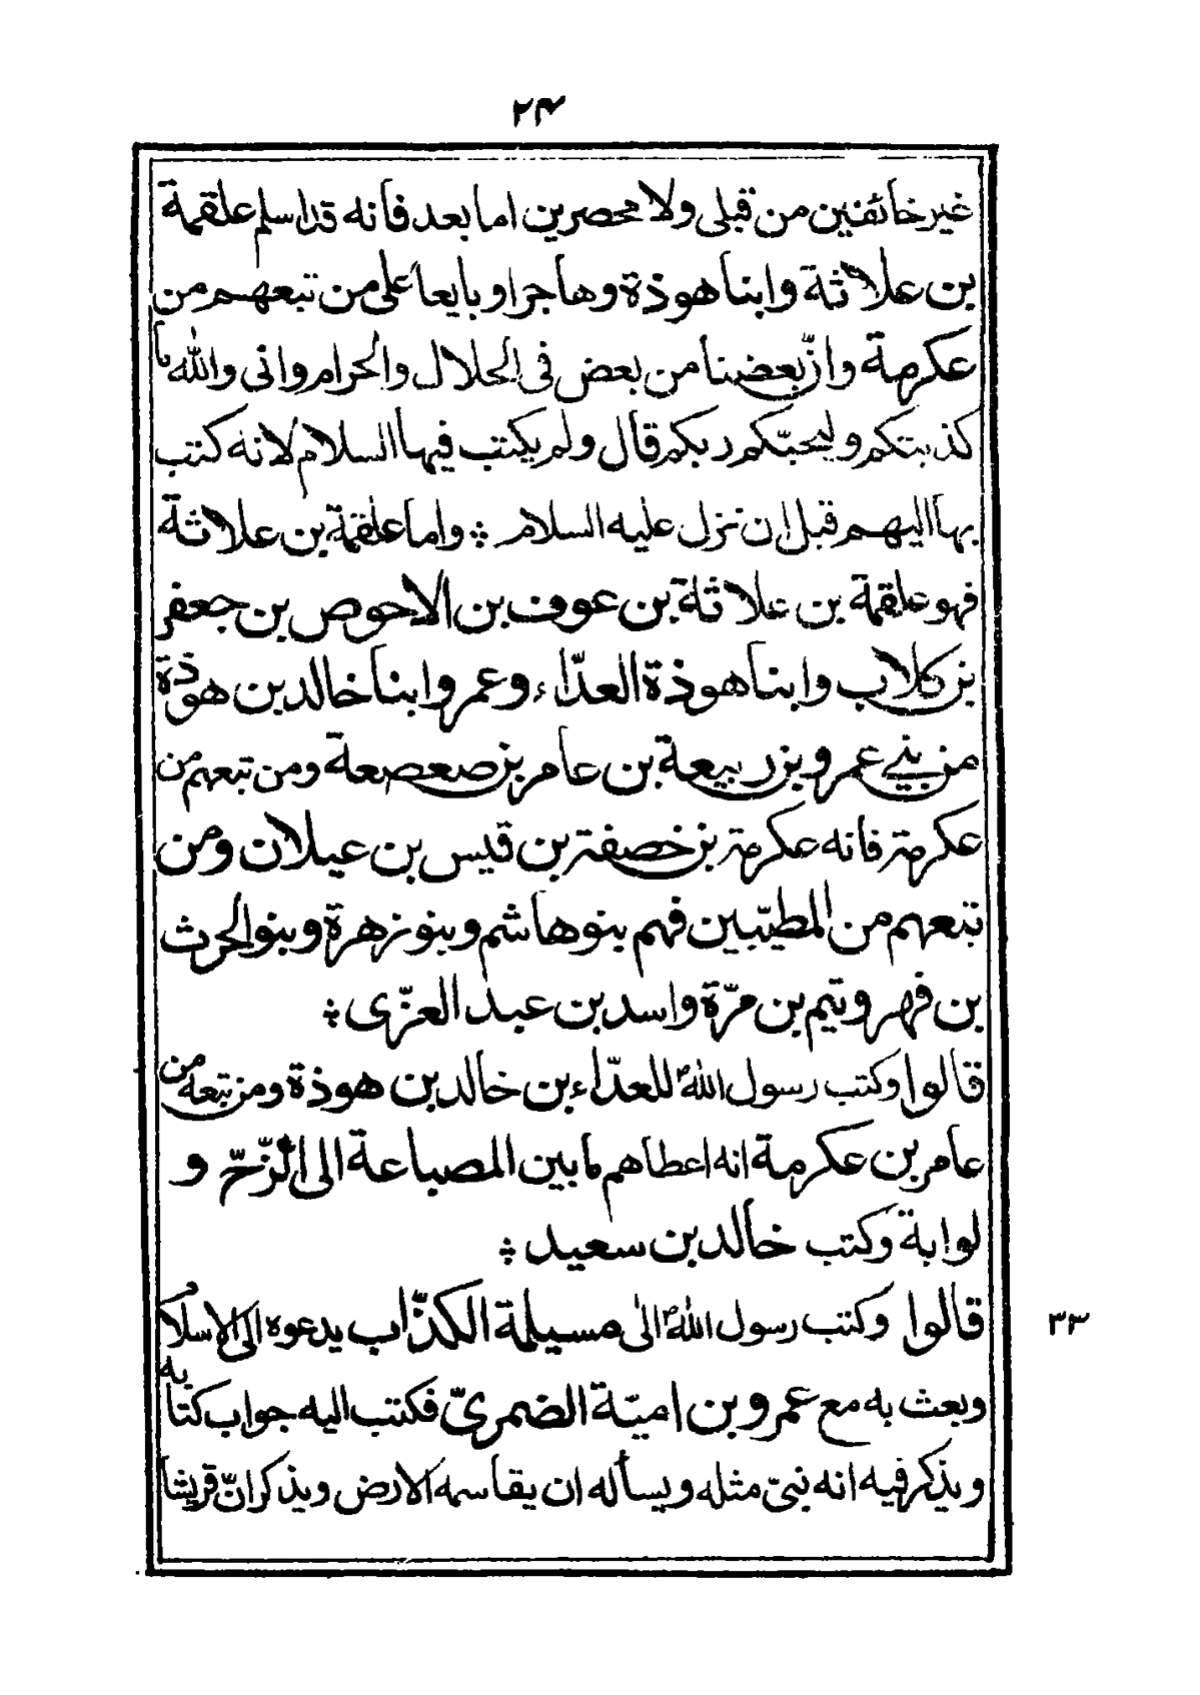 ۲۴
غير خائفين من قبلى ولا محصرين اما بعد فانه قد اسلم علقمة
بن علاثة وابنا هوذة وهاجرا وبايعا على من تبعهم من
عكرمة وانّ بعضنا من بعض فى الحلال والحرام وانى والله ما
كذبتكم وليحبّكم ربكم قال ولم يكتب فيها السلام لانه كتب
بها اليهم قبل ان نزل عليه السلام ؞ واما علقمة بن علاثة
فهو علقمة بن علاثة بن عوف بن الاحوص بن جعفر
بن كلاب وابنا هوذة العدّاء وعمرو ابنا خالد بن هوذة
من بنى عمرو بن ربيعة بن عامر بن صعصعة ومن تبعهم من
عكرمة فانه عكرمة بن خصفة بن قيس بن عيلان ومن
تبعهم من المطيّبين فهم بنو هاشم وبنو زهرة وبنو الحرث
بن فهر وتيم بن مرّة واسد بن عبد العزّى ؞
قالوا وكتب رسول اللهؐ للعدّاء بن خالد بن هوذة ومن تبعه من
عامر بن عكرمة انه اعطاهم ما بين المصباعة الى الزّحّ و
لوابة وكتب خالد بن سعيد ؞
۳۳
قالوا وكتب رسول اللهؐ الى مسيلمة الكذّاب يدعوه الى الاسلام
وبعث به مع عمرو بن اميّة الضمرىّ فكتب اليه جواب كتابه
ويذكر فيه انه نبىّ مثله ويسأله ان يقاسمه الارض ويذكر انّ قريشا